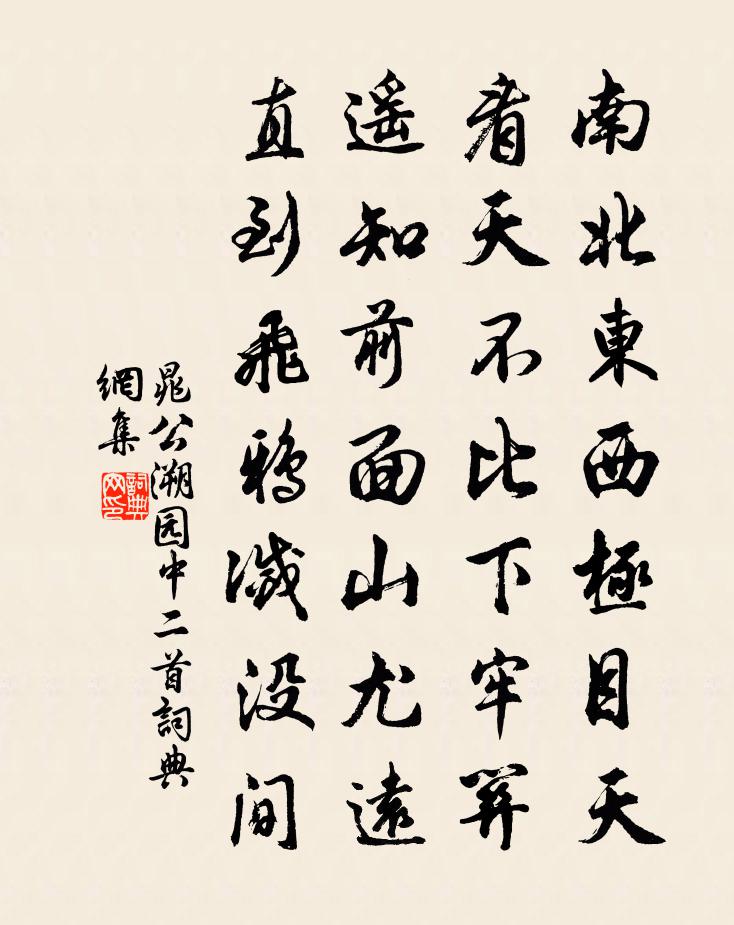 南北東西極目天
看天不比下牢關
遥知前面山尤遠
直到飛鴉滅没间
晁公溯园中二首詞典
網集
詞典
网印